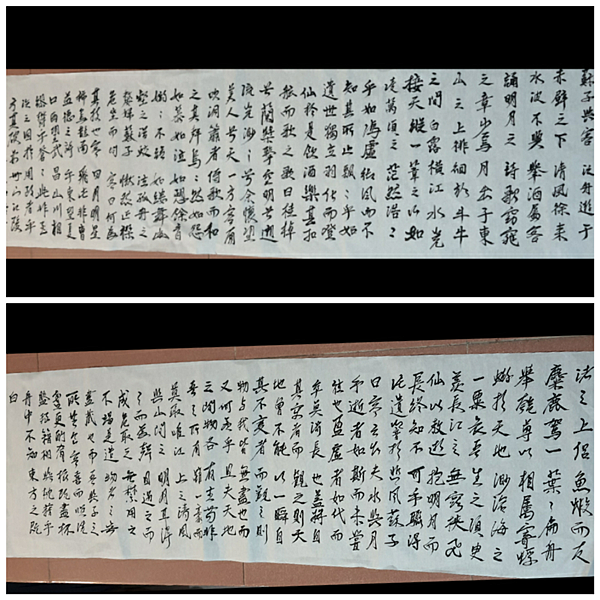 蘇子與客泛舟遊于
赤壁之下清風徐來
水波不興舉酒屬客
誦明月之詩歌窈窕
之章少焉月出于東
山之上徘徊於斗牛
之間白露橫江水光
接天縱一葦之所如
凌萬頃之茫然浩〻
乎如馮虛御風而不
知其所止飄〻乎如
遺世獨立羽化而登
仙於是飲酒樂甚扣
舷而歌之歌曰桂棹
兮蘭槳擊空明兮泝
流光渺〻兮余懷望
美人兮天一方客有
吹洞簫者倚歌而和
之其聲嗚〻然如怨
如慕如泣如訴餘音
嫋〻不絕如縷舞幽
壑之潛蛟泣孤舟之
嫠婦蘇子愀然正襟
危坐而問客曰何為
其然也客曰月明星
稀烏鵲南飛此非曹
孟德之詩乎西望夏
口東望武昌山川相
繆鬱乎蒼〻此非孟
德之困於周郎者乎
方其破荊州下江陵
渚之上侶魚蝦而友
麋鹿駕一葉之扁舟
舉匏尊以相屬寄蜉
蝣於天地渺滄海之
一粟哀吾生之須臾
羨長江之無窮挾飛
仙以遨遊抱明月而
長終知不可乎驟得
託遺響於悲風蘇子
曰客亦知夫水與月
乎逝者如斯而未嘗
往也盈虛者如代而
卒莫消長也蓋將自
其變者而觀之則天
地曾不能以一瞬自
其不變者而觀之則
物與我皆無盡也而
又何羨乎且夫天地
之間物各有主苟非
吾之所有雖一毫而
莫取唯江上之清風
與山間之明月耳得
之而為聲目遇之而
成色取之無禁用之
不竭是造物者之無
盡藏也而吾與子之
所共食客喜而笑洗
盞更酌肴核既盡杯
盤狼籍相與枕藉乎
舟中不知東方之既
白